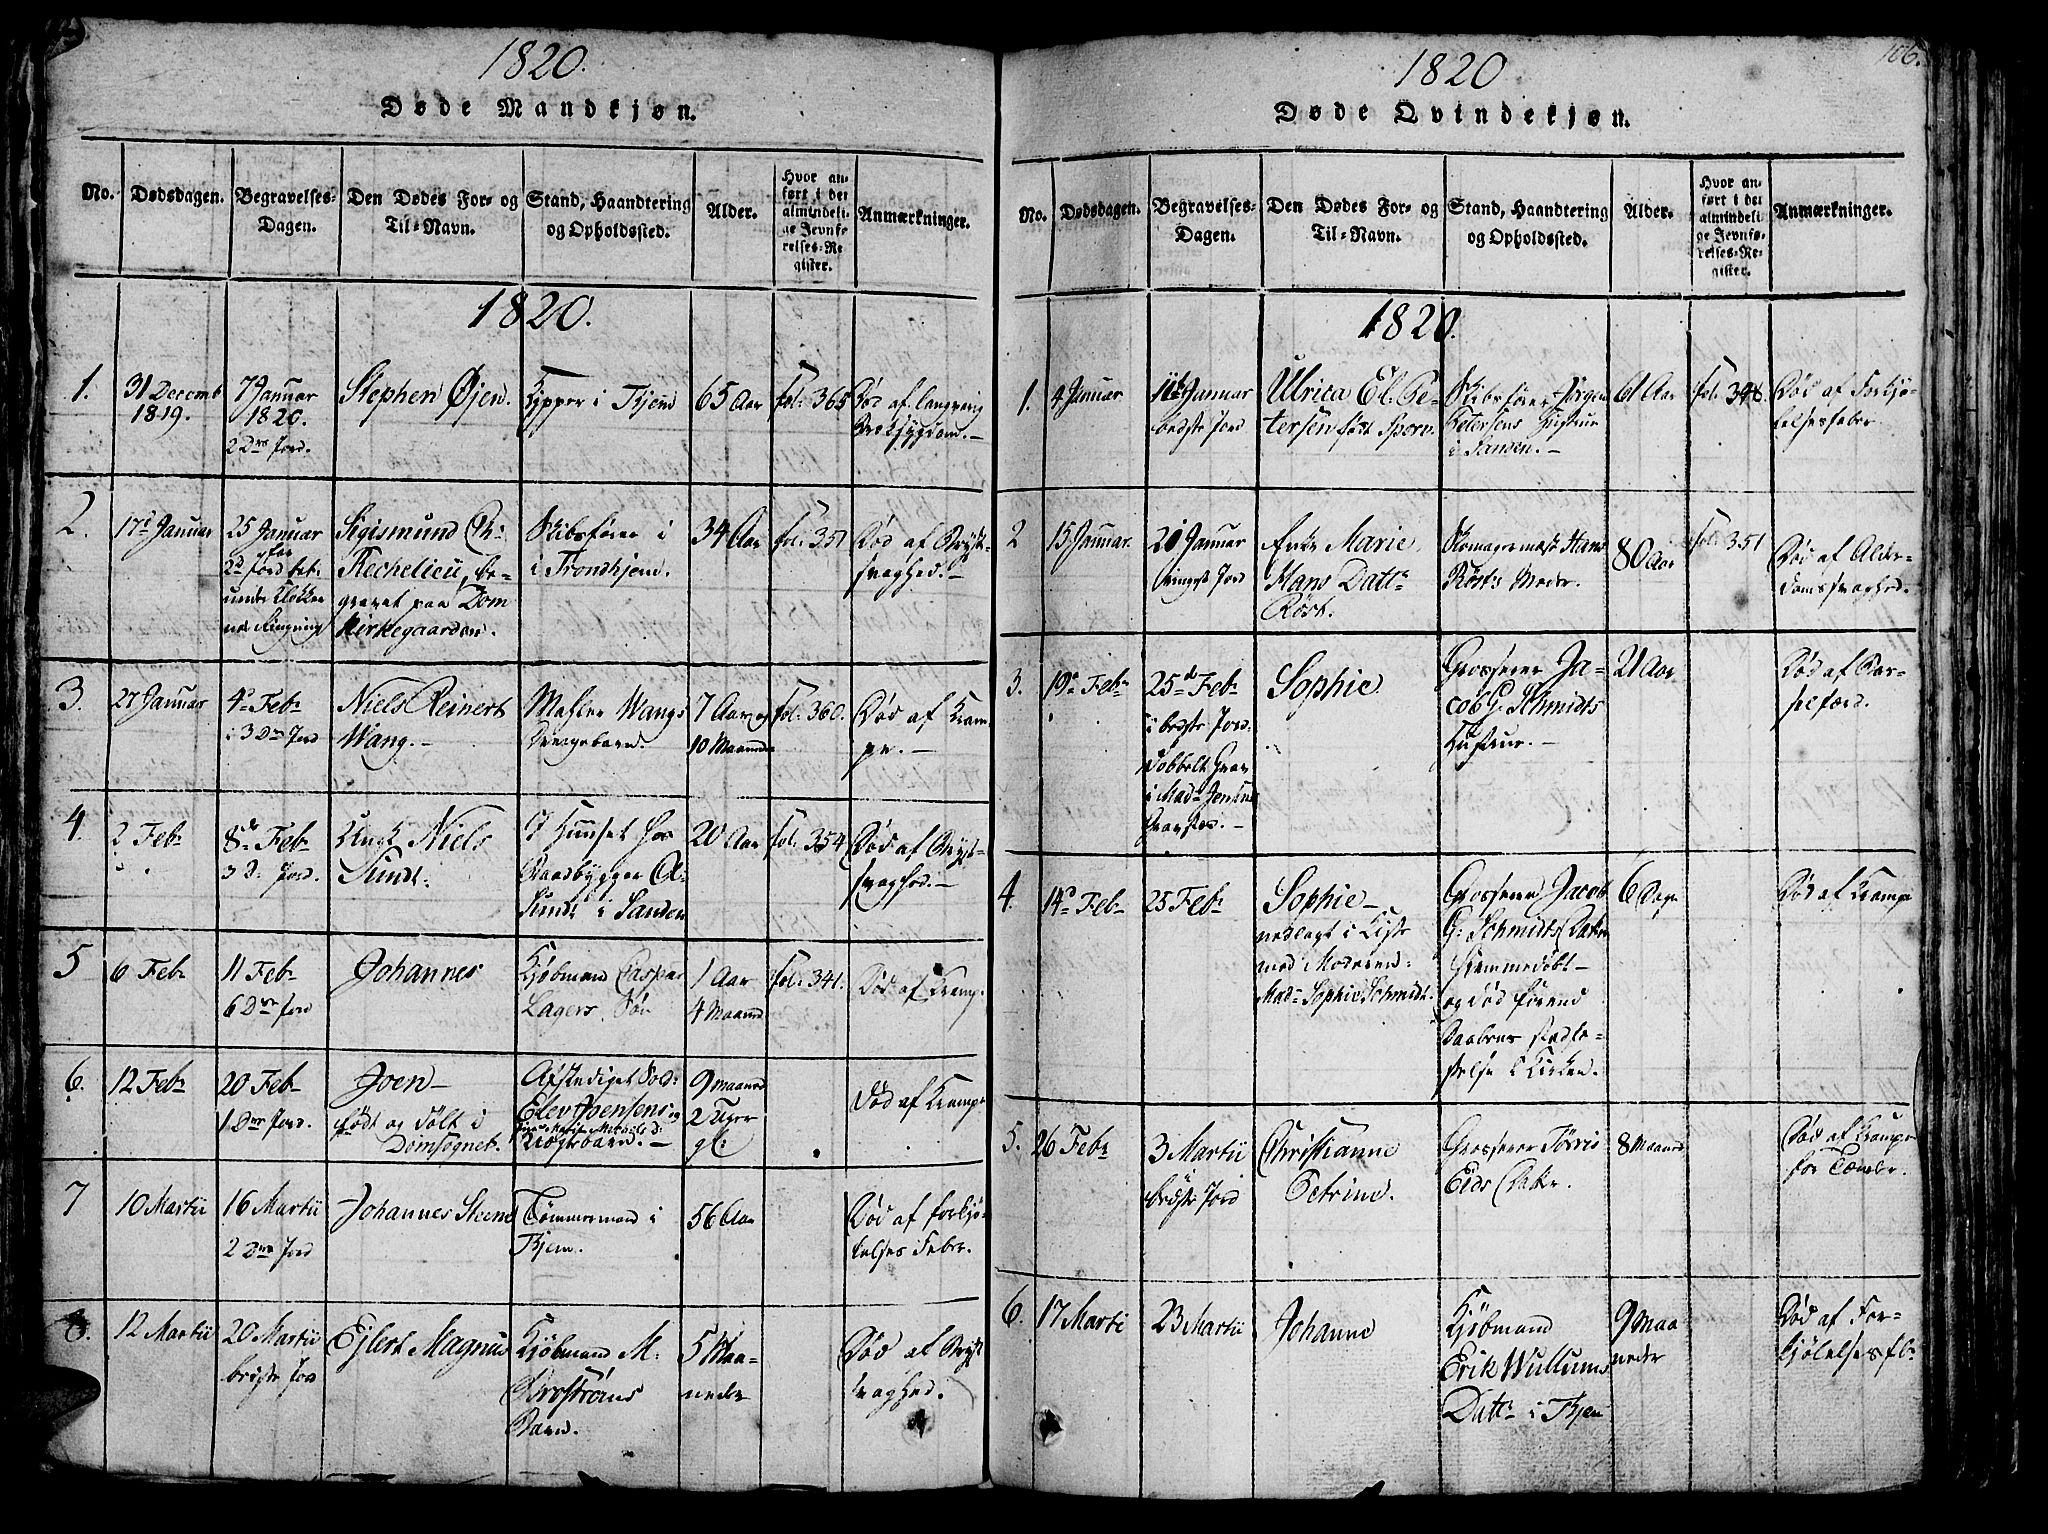 1820.
Døde Mandkjøn.
No.
Dødsdagen.
Begravelses-
Dagen.
Den Dødes For- og
Til-Navn.
Stand, Haandtering
og Opholdssted.
Alder.
Hvor an-
ført i det
almindeli-
ge Jevnfø-
relses-Re-
gister.
Anmærkninger.
1820.
1.
31 Decemb
1819.
7 Januar
1820.
2 Drs Jord.
Stephen Øjen.
i Thjem
65 Aar
fol. 365
Død af langvarig
Brøstsygdom.
2.
17 Januar
25 Januar
Sigismund
Rechelieu, be-
gravet paa Dom
Kirkegaarden.
Skibsfører i
i Trondhjem.
34 Aar
fol. 351
Død af Bryst-
svaghed.
3.
27 Januar
4 Feb
i 3 Drs Jord
Niels Reinert
Wang.
Mahler Wangs
Drengebarn.
7 Aar og
10 Maaneder
fol. 360.
Død af Kram-
pe.
4.
2 Feb
8 Feb
3 D. Jord.
Ungk Niels
Sundt.
A.
Sundt i Sanden
20 Aar
fol. 354
Død af Bryst-
svaghed.
5
6 Feb
11 Feb
6 Drs Jord
Johannes
Kjøbmand Casper
Lagers Søn
1 Aar
4 Maaned
fol. 341.
Død af Kramp.
6.
12 Feb
20 Feb
1 Drs Jord.
Joen
født og døbt i
Domsognet.
Afskediget Sold:
Elev Joensens
9 maaned
2 Uger
gl:
Død af Krampe
7
10 Martii
16 Martii
2 Drs Jord
Johannes Steen
Tømmermand i
Thjem.
56 Aar
Død af forkjø-
lelses Feber.
8.
12 Martii
20 Martii
bedste Jord
Ejlert Magnus
Kjøbmand M.
Brostrøms
Barn.
5 Maa-
neder
Død af Bryst
svaghed.
106.
1820
Døde Qvindekjøn.
No.
Dødsdagen.
Begravelses-
Dagen.
Den Dødes For- og
Til-Navn.
Stand, Haandtering
og Opholdssted.
Alder.
Hvor an-
ført i det
almindeli-
ge Jevnfø-
relses-Re-
gister.
Anmærkninger.
1820.
1.
4 Januar
11 Januar
bedste Jord
Ulrica El. Pe-
tersen født Sporv.
Skibsfører Jørgen
Petersens Hustrue
i Sanden.
61 Aar
fol. 348
Død af Forkjø-
lelsesfeber.
2
15 Januar.
21 Januar
ringest Jord
Enke Marie
Hans Datt
Röst.
Skomagermester Hans
Röst's Moder.
80 Aar
fol. 351
Død af Alder-
domssvaghed.
3.
19 Feb
25 Feb
i bedste Jord.
Dobbelt Grav
i Mad. Jensens
Gravsted.
Sophie
Grosserer Ja-
cob G. Schmidts
Hustrue.
21 Aar
Død af Bar-
selfærd.
4.
14 Feb
25 Feb
Sophie
nedlagt i Kiste
med Moderen
Mad. Sophie Schmidt.
Grosserer Jacob
G: Schmidts Datter
hiemmedøbt
og død forend
Daabens stadfæ-
stelse i Kirken.
6 Dage
Død af Krampe
5.
26 Feb
3 Martii
bedste Jord
Christianne
Petrine.
Grosserer Törris
Eids Datter.
8 Maaned
Død af Krampe
for Tænder.
6.
17 Marti
23 Martii
Johanne
Kjøbmand
Erik Wullums
Datt i Thjem
9 Maa
neder
Død af For-
kjølelsesfb